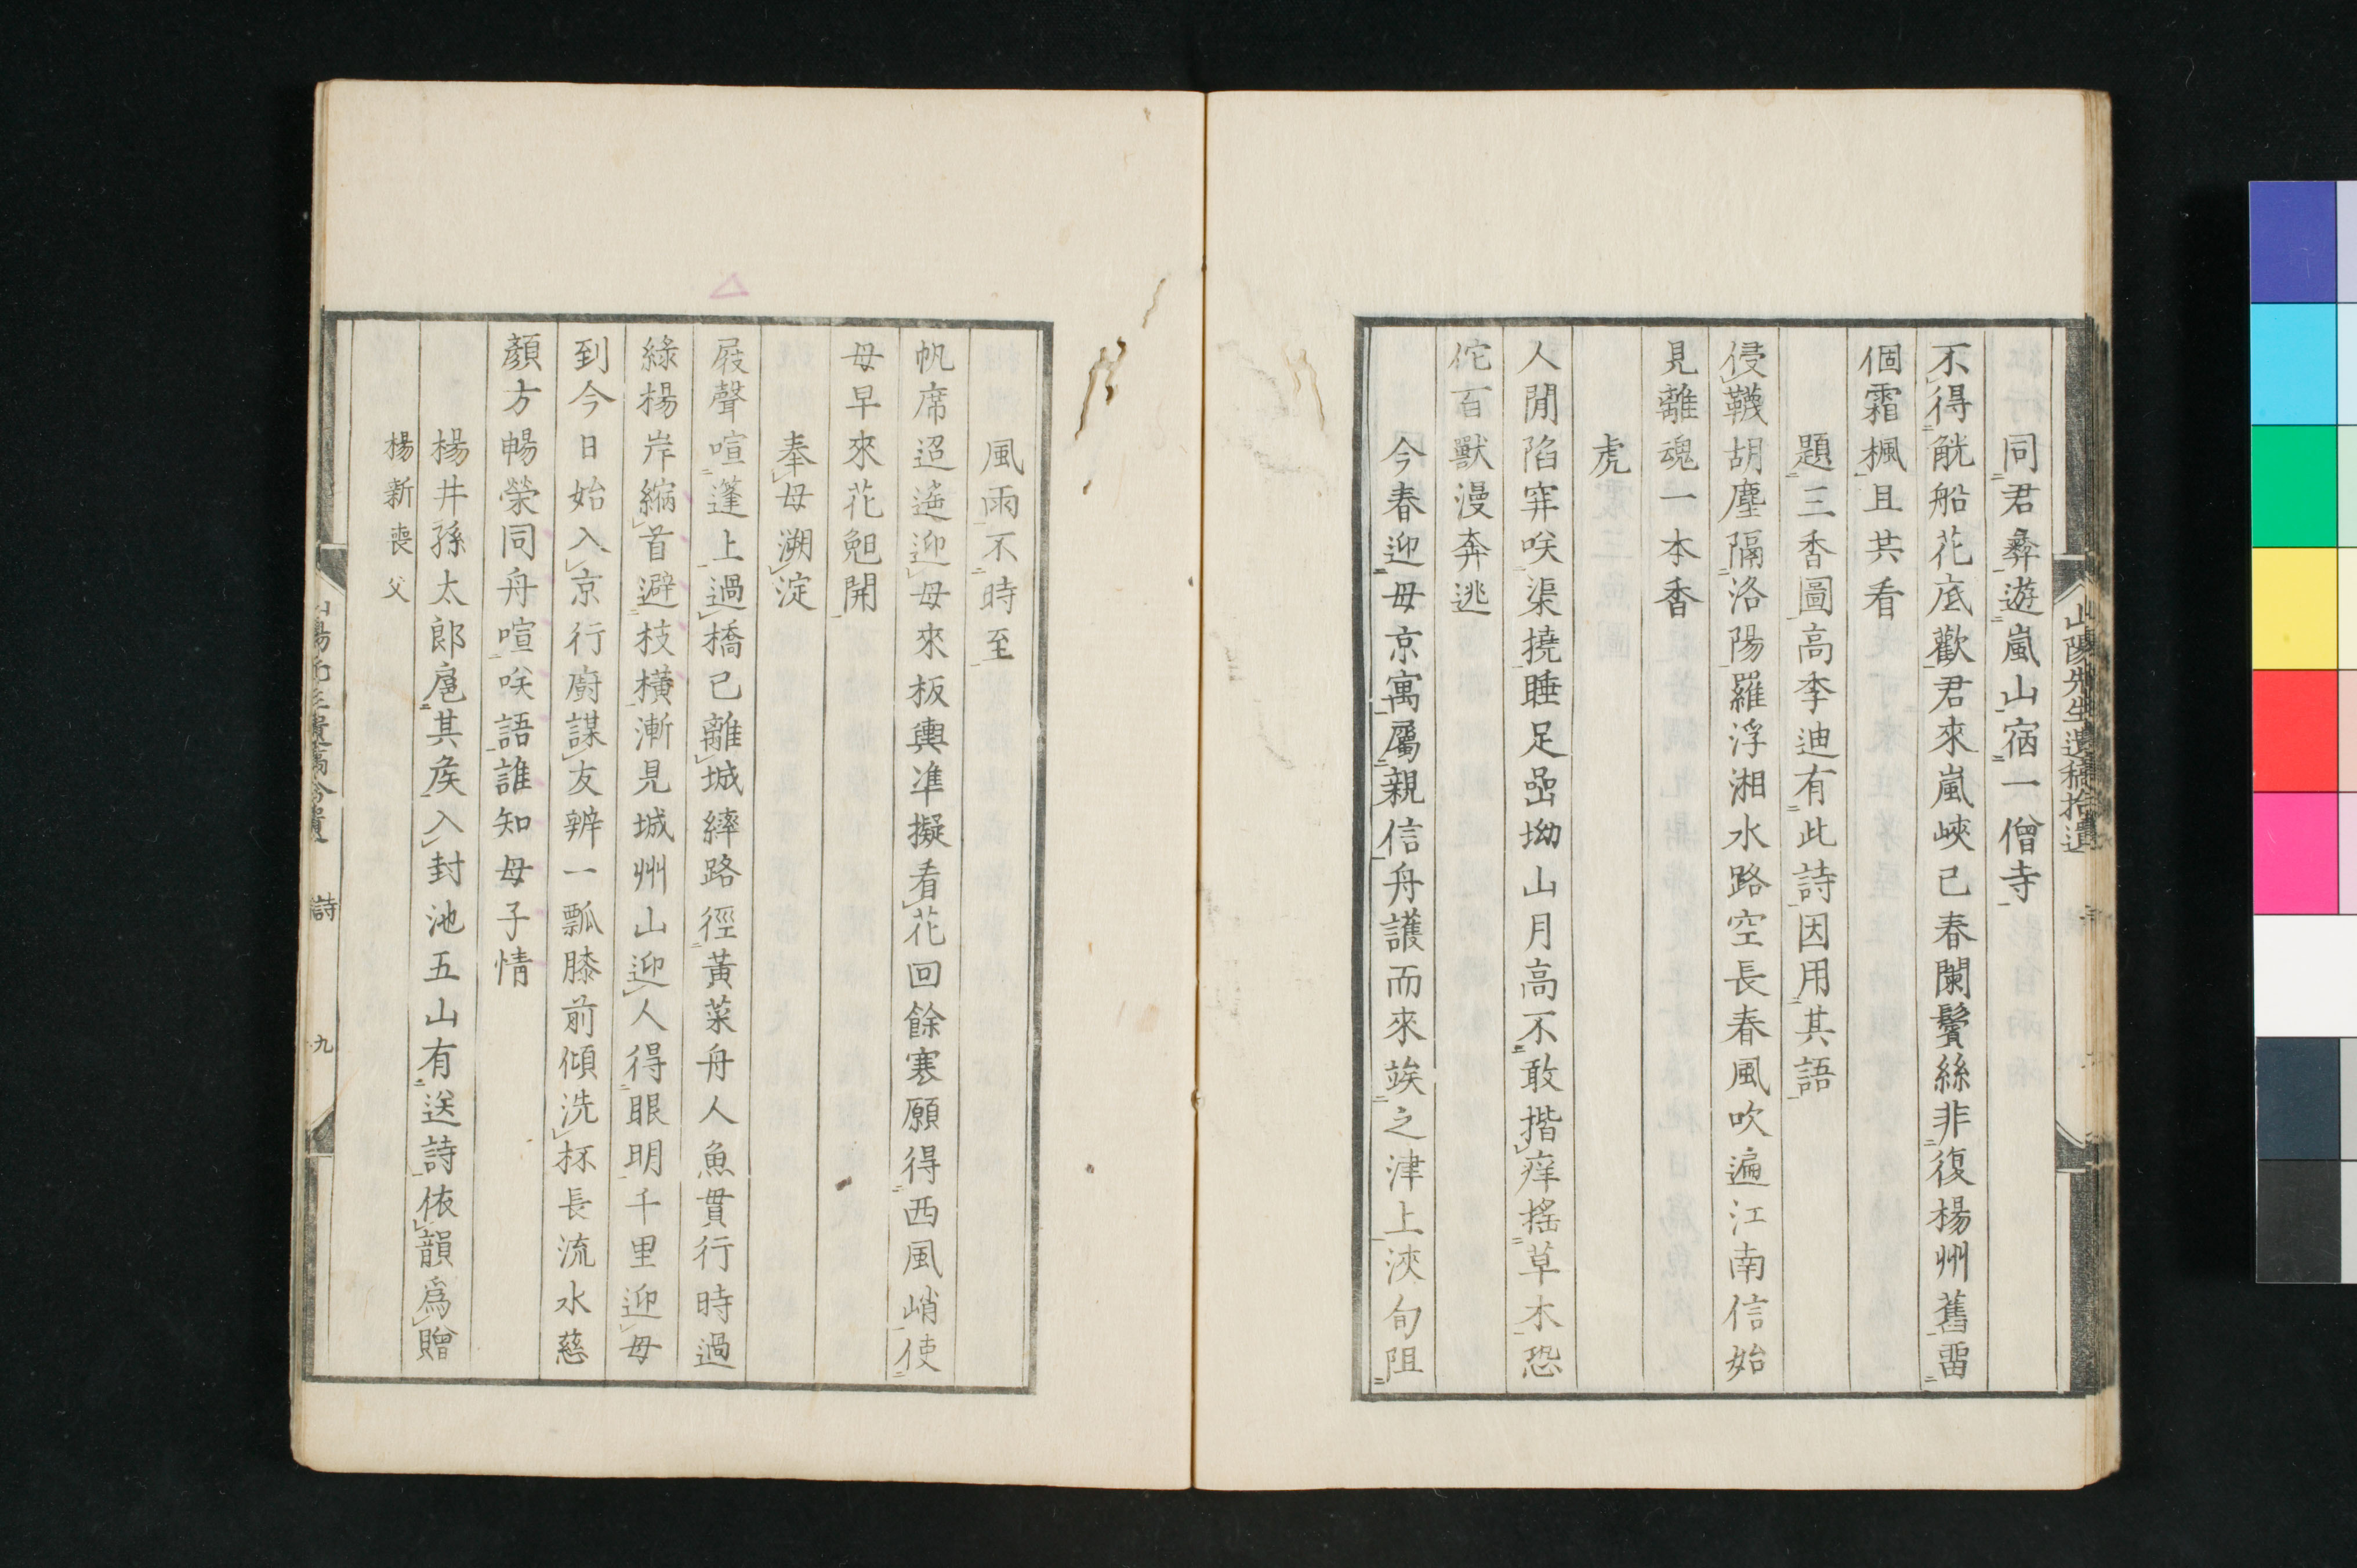 山陽先生遺稿拾遺
同君彜遊嵐山宿一僧寺
不得觥船花底歡君來嵐峽已春闌鬢絲非復楊州舊畱
個霜楓且共看
題三香圖高李迪有此詩因用其語
侵韈胡塵隔洛陽羅浮湘水路空長春風吹遍江南信始
見離魂一本香
虎
人閒陷穽咲渠撓睡足嵒坳山月高不敢揩痒搖草木恐
佗百獸漫奔逃
今春迎母京寓屬親信舟護而來竢之津上浹旬阻
風雨不時至
帆席迢遙迎母來板輿準擬看花回餘寒願得西風峭使
母早來花晩開
奉母溯淀
屐聲喧篷上過橋已離城縴路徑黃菜舟人魚貫行時過
綠楊岸縮首避枝橫漸見城州山迎人得眼明千里迎母
到今日始入京行廚謀友辨一瓢膝前傾洗杯長流水慈
顏方暢榮同舟喧咲語誰知母子情
楊井孫太郎扈其矦入封池五山有送詩依韻爲贈
楊新喪父
山陽先生遺稿拾遺 詩 九